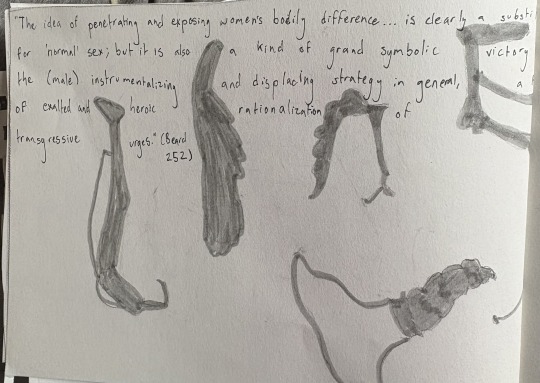 "The idea of penetrating and exposing women's bodily difference... is clearly a substi
for 'normal' sex; but it is also a kind of grand symbolic victory
the (male) instrumentalizing and displacing strategy in general, a
of exalted and heroic rationalization of
transgressive urges." (Beard
252)